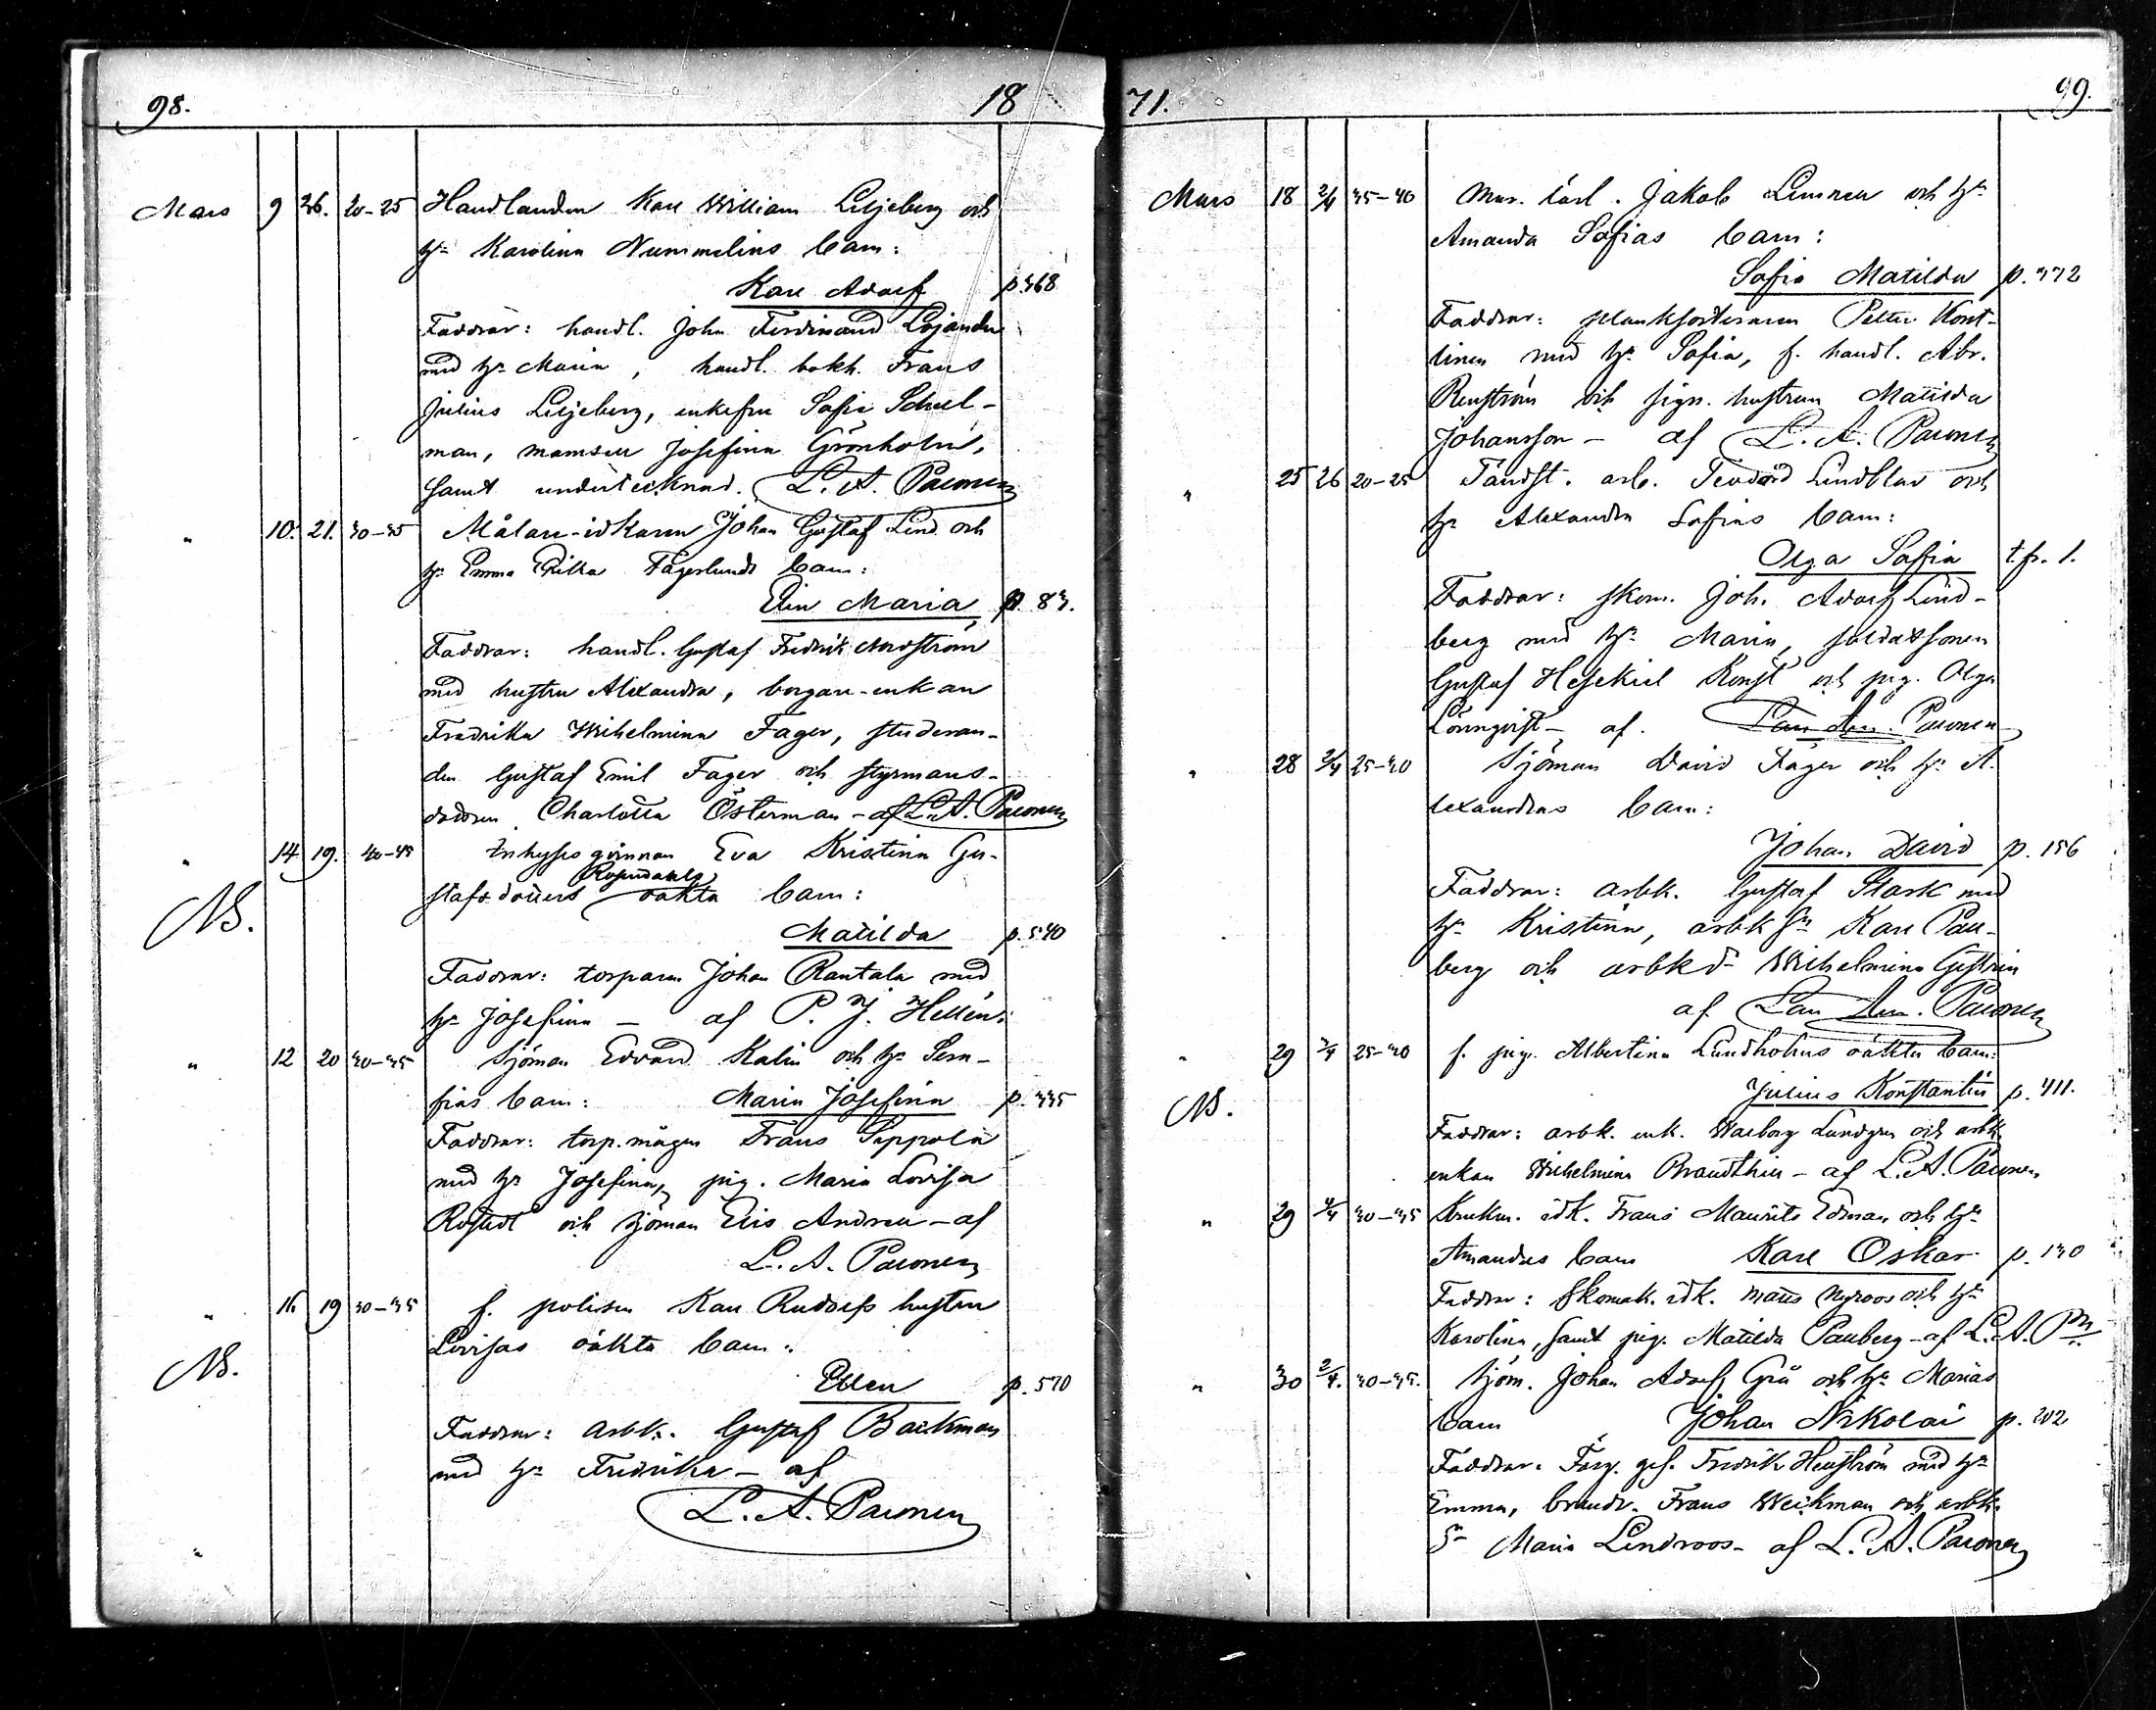 98. 18
Mars 9 26. 20-25 Handlanden Karl William Liljeberg och
hu Karolina Nummelins barn:
Karl Adolf p. 368
Faddrar: handl. John Ferdinand Lojander
med hu Maria, handl. bokh. Frans
Julius Liljeberg, enkefru Sofie Schul-
man, mamsell Josefina Grönholm,
samt undertecknad. L. A. Paconen
" 10. 21. 30-35 Målare-idkaren Johan Gustaf Lind och
hu Emma Erika Fagerlunds barn:
Elin Maria p. 83.
Faddrar: handl. Gustaf Fredrik Nordström
med hustru Alexandra, borgare-enkan
Fredrika Wilhelmina Fager, studeran-
den Gustaf Emil Fager och styrmans-
dottren Charlotta Österman - af L. A. Paconen
" 14 19. 40-45 Inhyses qvinnan Eva Kristina Gu-
Rosendahls
stafsdotters oäkta barn:
NB.
Matilda p. 540
Faddrar: torparen Johan Rantala med
hu Josefina - af P. J. Hellén.
" 12 20 30-35 Sjöman Edvard Kalin och hu Sera-
fias barn: Maria Josefina p. 335
Faddrar: torp.mågen Frans Seppola
med hu Josefina, pig. Maria Lovisa
Rostedt och sjöman Elis Andren - af
L. A. Paconen
" 16 19 30-35 f. polisen Karl Rudolfs hustru
Lovisas oäkta barn:
NB.
Ellen p. 570
Faddrar: arbk. Gustaf Backman
med hu Fredrika - af
L. A. Paconen
"
71. 99.
Mars 18 2/4 35-40 Mur. lärl. Jakob Lemnen och hu
Amanda Sofias barn:
Sofia Matilda p. 372
Faddrar: planksorteraren Petter Kont-
tinen med hu Sofia, f. handl. Abr.
Renström och sign. hustrun Matilda
Johansson - af L. A. Paconen
" 25 26 20-25 Tändst. arb. Teodord Lindblad och
hu Alexandra Sofias barn:
Olga Sofia t.fr. 1.
Faddrar: skom. Joh. Adolf Lind-
berg med hu Maria, soldatsonen
Gustaf Hesekiel Konst och pig. Olga
Lönnqvist - af. Paconen
" 28 2/4 25-30 Sjöman David Fager och hu A-
lexandras barn:
Johan David p. 156
Faddrar: arbk. Gustaf Stark med
hu Kristina, arbk sn Karl Pau-
berg och arbk d- Wilhelmina Gestrin
af Paconen
" 29 2/4 25-30 f. pig. Albertina Lundholms oäkta barn:
Julius Konstantin p. 411.
NB.
Faddrar: arbk. enk. Walborg Lundgren och arbk.
enkan Wilhelmina Brandthin - af L. A. Paconen
" 29 4/4 30-35 Krukm. idk. Frans Maurits Edman och hu
Amandas barn Karl Oskar p. 130
Faddrar: Skomak. idk. Matts Nyroos och hu
Karolina, samt pig. Matilda Pauberg - af L. A. Pn.
" 30 2/4. 30-35. Sjöm. Johan Adolf Grå och hu Marias
barn Johan Nikolai p. 202
Faddrar: Färg. ges. Fredrik Hellström med hu
Emma, brandv. Frans Weckman och arbk.
d- Maria Lindroos - af L. A. Paconen